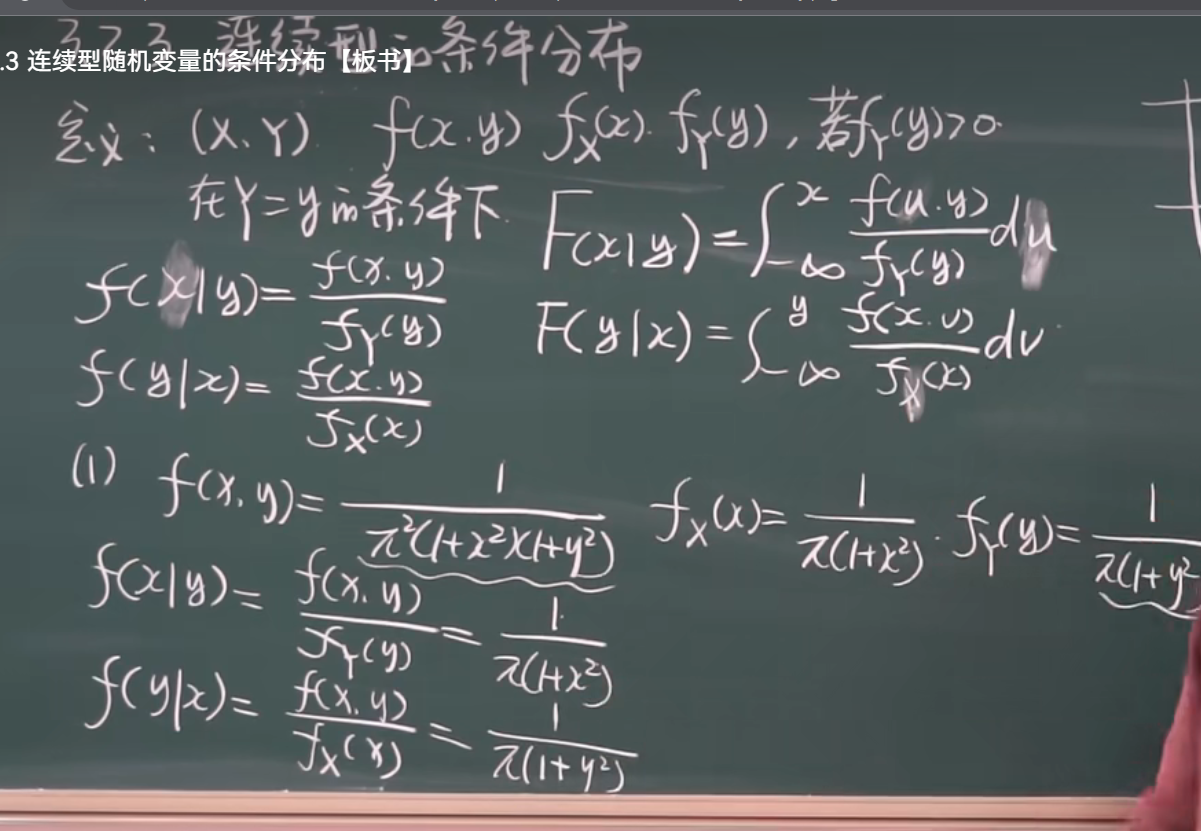 3.2.3 连续型的条件分布
.3 连续型随机变量的条件分布【板书】
定义：(X,Y) f(x,y) f_X(x). f_Y(y)，若f_Y(y)>0.
在Y=y的条件下 F(x|y)=∫_{-∞}^{x} \frac{f(u,y)}{f_Y(y)}du
f(x|y)=\frac{f(x,y)}{f_Y(y)} F(y|x)=∫_{-∞}^{y} \frac{f(x,v)}{f_X(x)}dv
f(y|x)=\frac{f(x,y)}{f_X(x)}
(1) f(x,y)=\frac{1}{π²(1+x²)(1+y²)} f_X(x)=\frac{1}{π(1+x²)}. f_Y(y)=\frac{1}{π(1+y²
f(x|y)=\frac{f(x,y)}{f_Y(y)}=\frac{1}{π(1+x²)}
f(y|x)=\frac{f(x,y)}{f_X(x)}=\frac{1}{π(1+y²)}